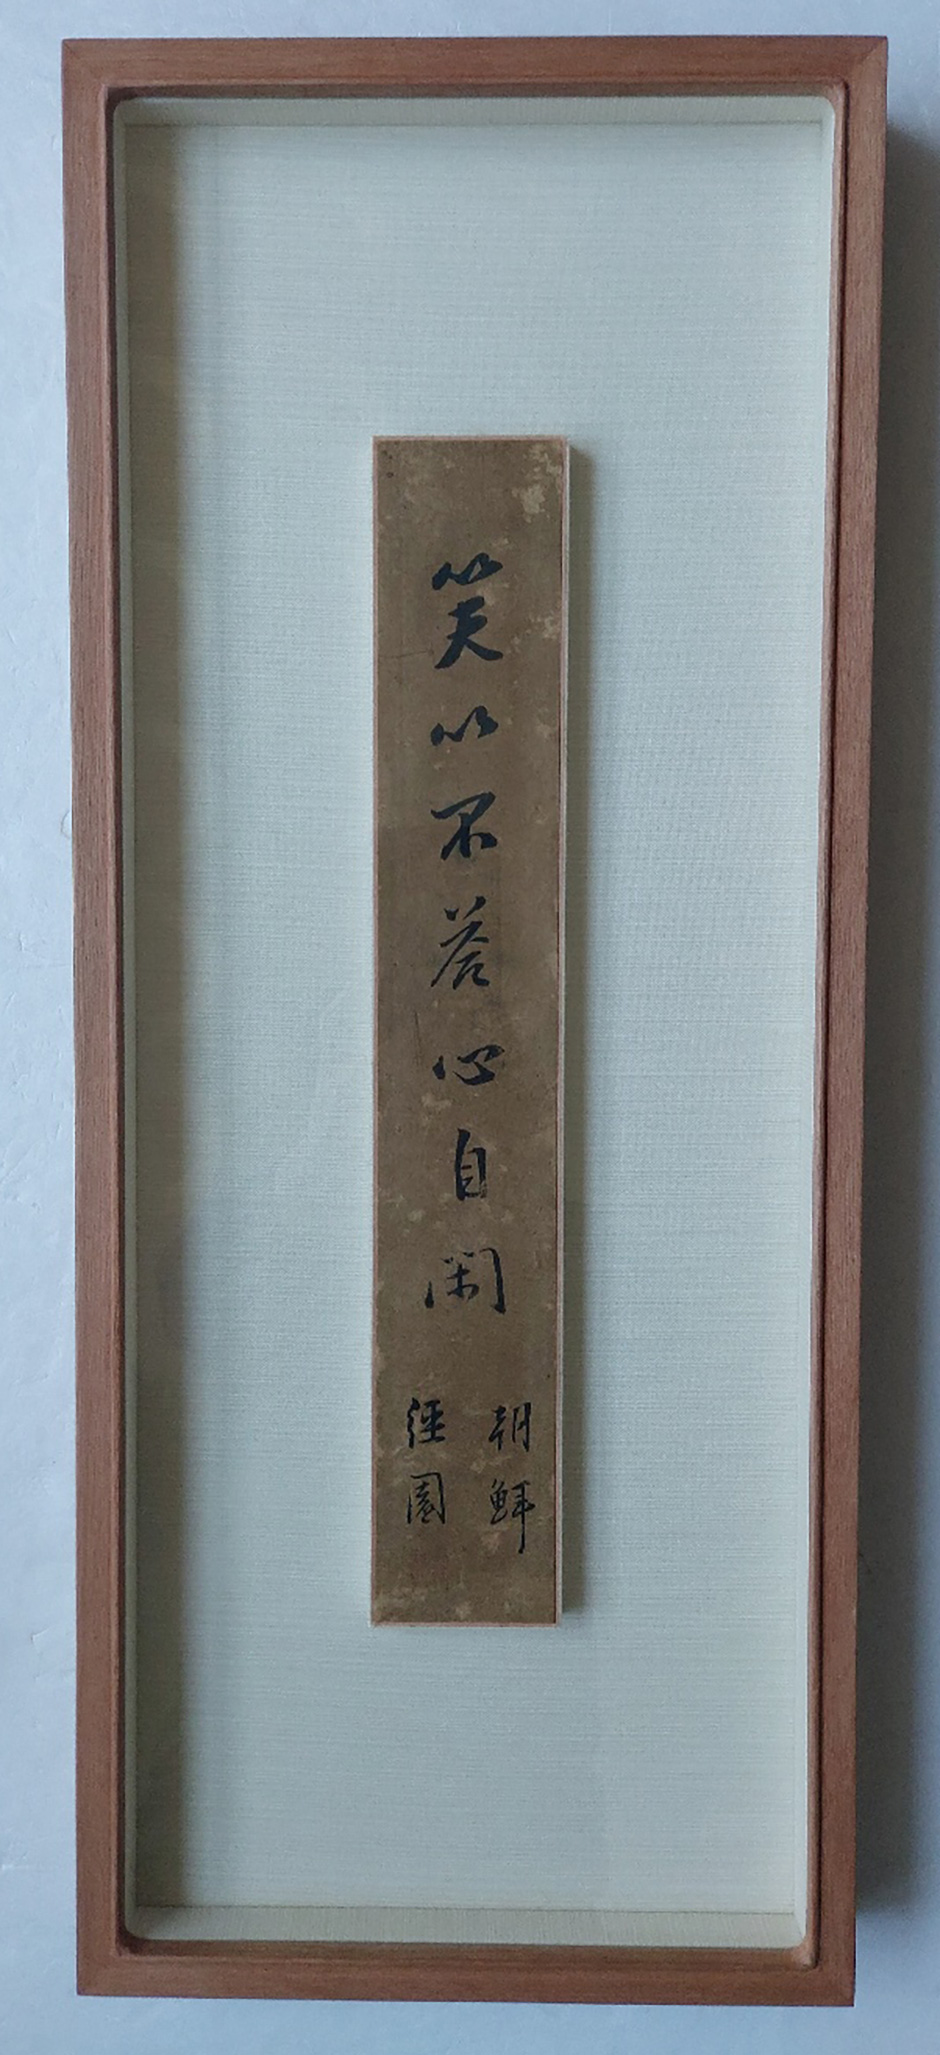 笑以不荅心自閑
朝鮮
徑園